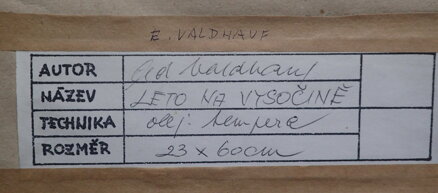 E. VALDHAUF
AUTOR Ed Valdhauf
NÁZEV LETO NA VYSOČINĚ
TECHNIKA olej. tempera
ROZMĚR 23 x 60cm